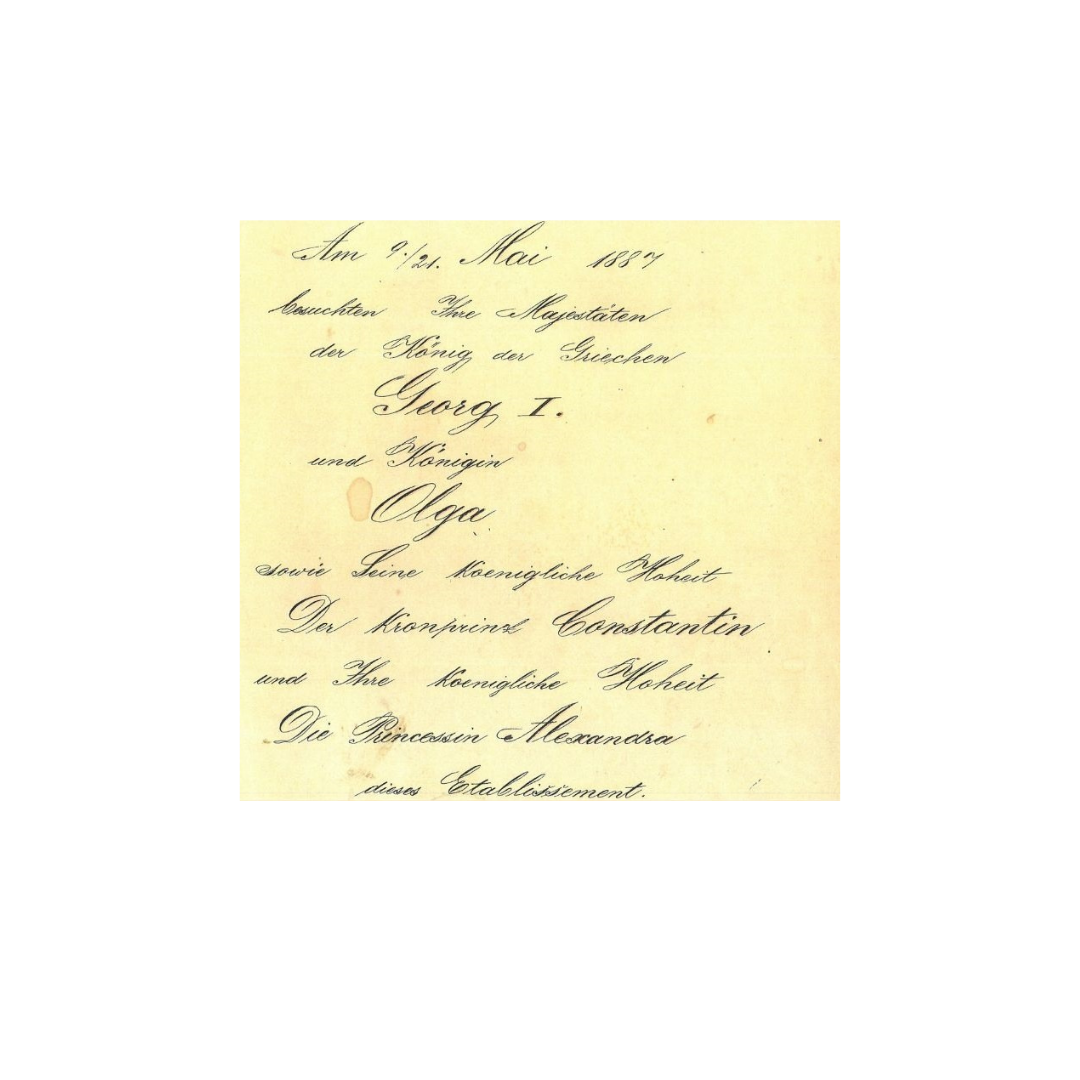 Am 9./21. Mai 1887
besuchten Ihre Majestäten
der König der Griechen
Georg I.
und Königin
Olga
sowie Seine Koenigliche Hoheit
Der Kronprinz Constantin
und Ihre Koenigliche Hoheit
Die Princessin Alexandra
dieses Etablissement.